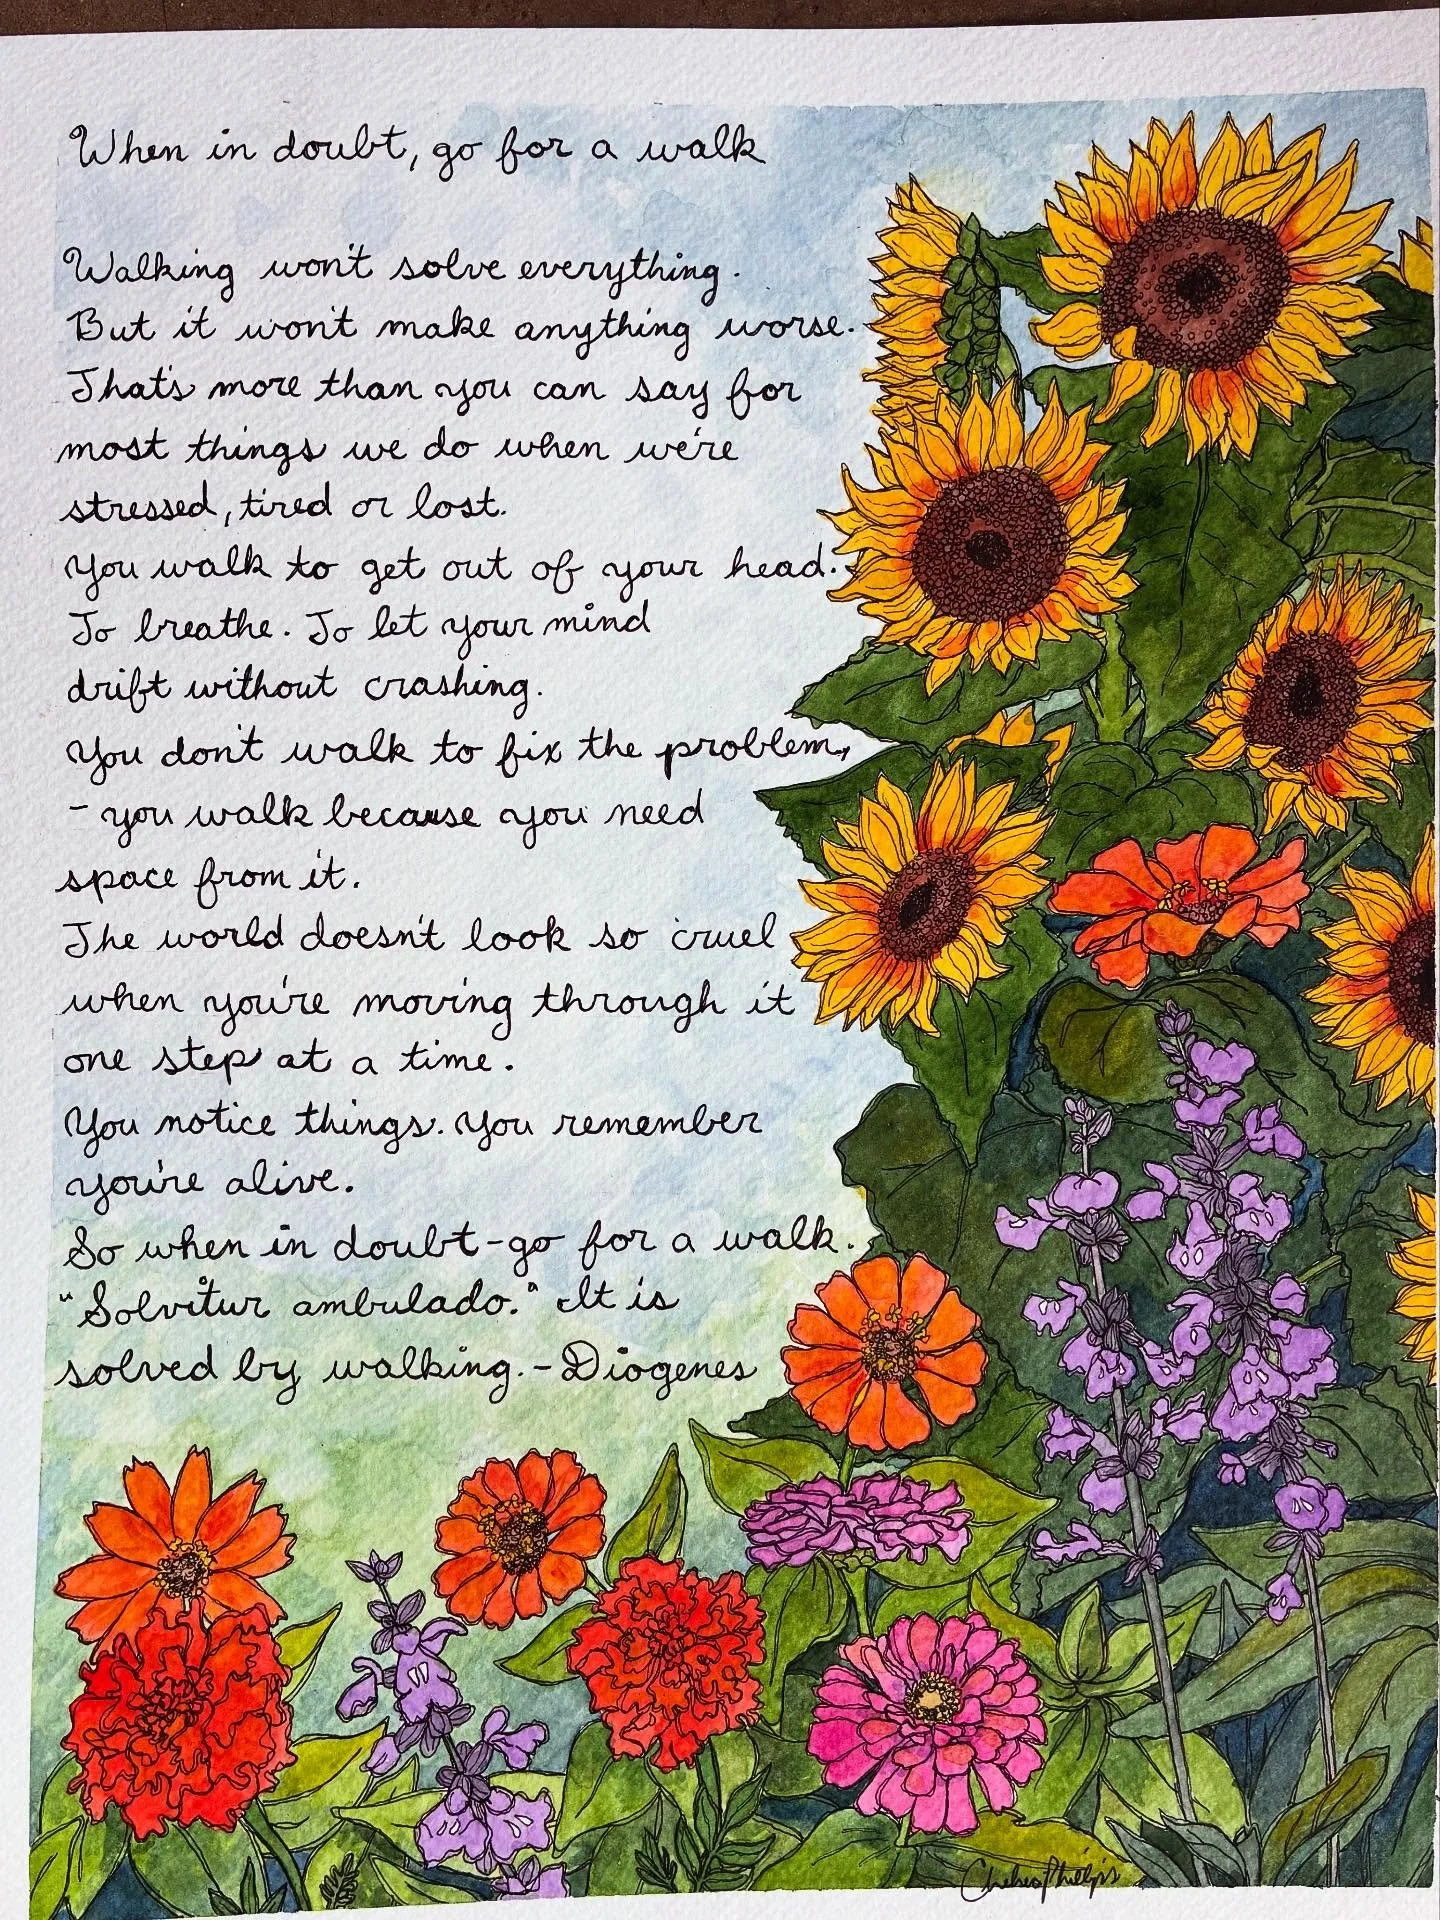 When in doubt, go for a walk
Walking won't solve everything.
But it won't make anything worse.
That's more than you can say for
most things we do when we're
stressed, tired or lost.
You walk to get out of your head.
To breathe. To let your mind
drift without crashing.
You don't walk to fix the problem,
- you walk because you need
space from it.
The world doesn't look so cruel
when you're moving through it
one step at a time.
You notice things. You remember
you're alive.
So when in doubt - go for a walk.
"Solvitur ambulado." It is
solved by walking. - Diogenes
Chelsea Phillips